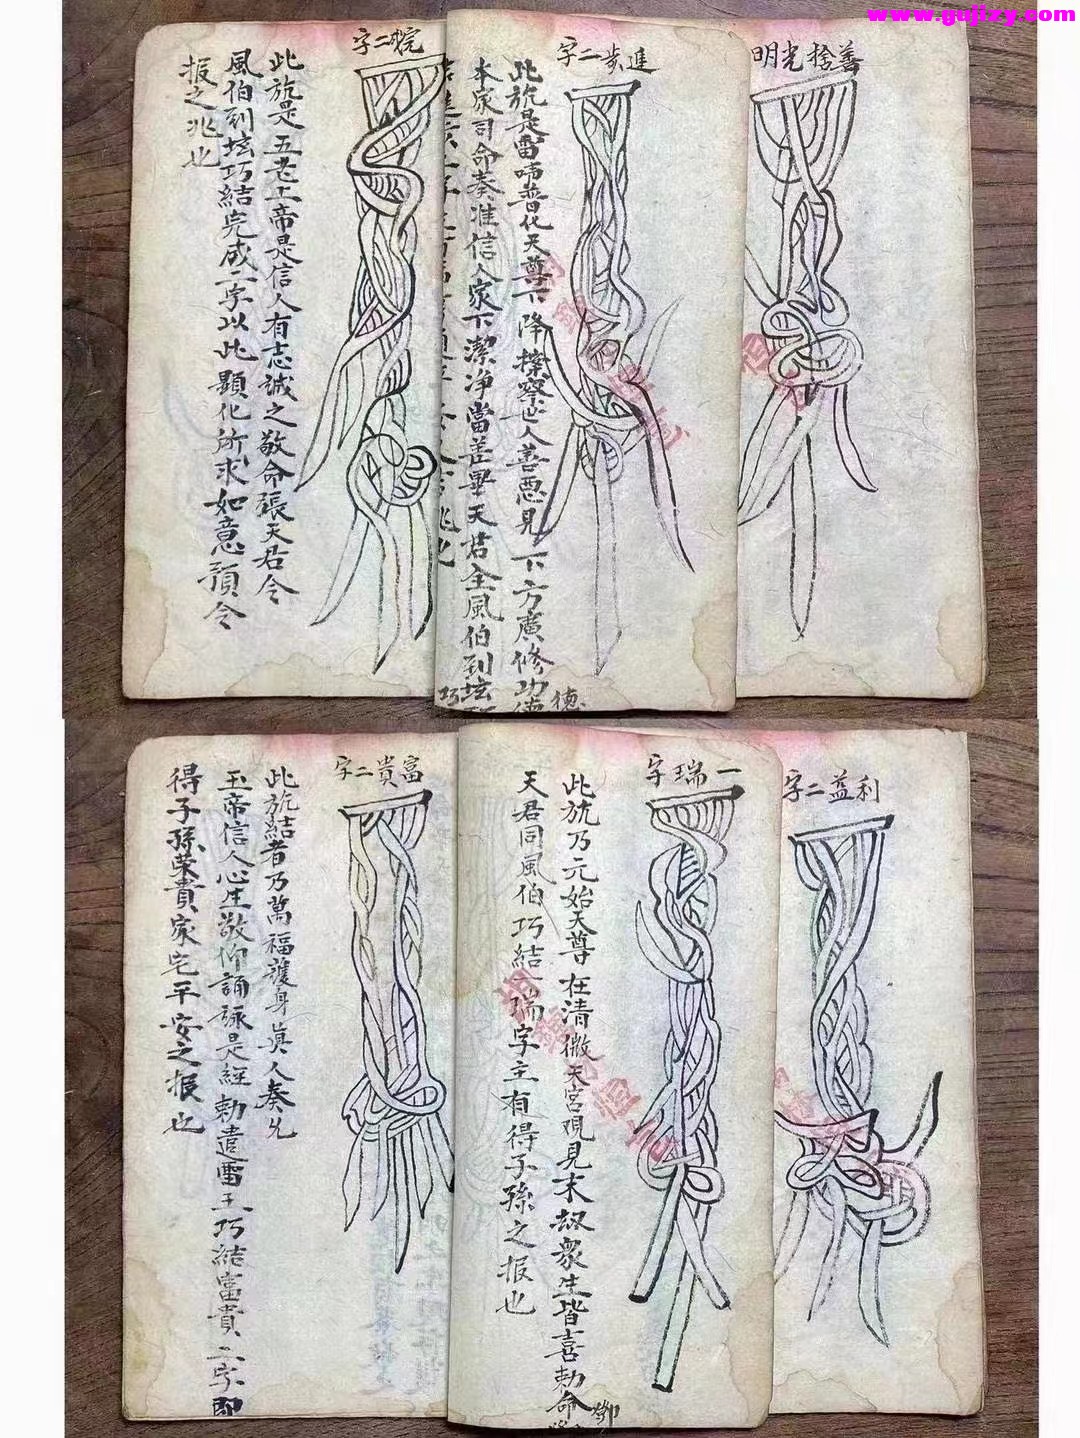 www.gujizy.com
善捨光明
進步二字
此旂是雷啼普化天尊下降擦察世人善惡見下方廣修功德
本家司命奏准信人家下潔净當差畢天君全風伯到坛
巧
字二
此旂是五老上帝是信人有志誠之敬命張天君令
風伯到坛巧結完成二字以此顯化所求如意預令
报之兆也
利益二字
一瑞字
此旂乃元始天尊在清微天宮覌見末刼衆生皆喜勅命鄧
天君同風伯巧結一瑞字主有得子孫之报也
富貴二字
此旂結者乃萬福護身眞人奏允
玉帝信人心生敬仰誦詠是經勅遣雷王巧結富貴二字即
得子孫荣貴家宅平安之报也